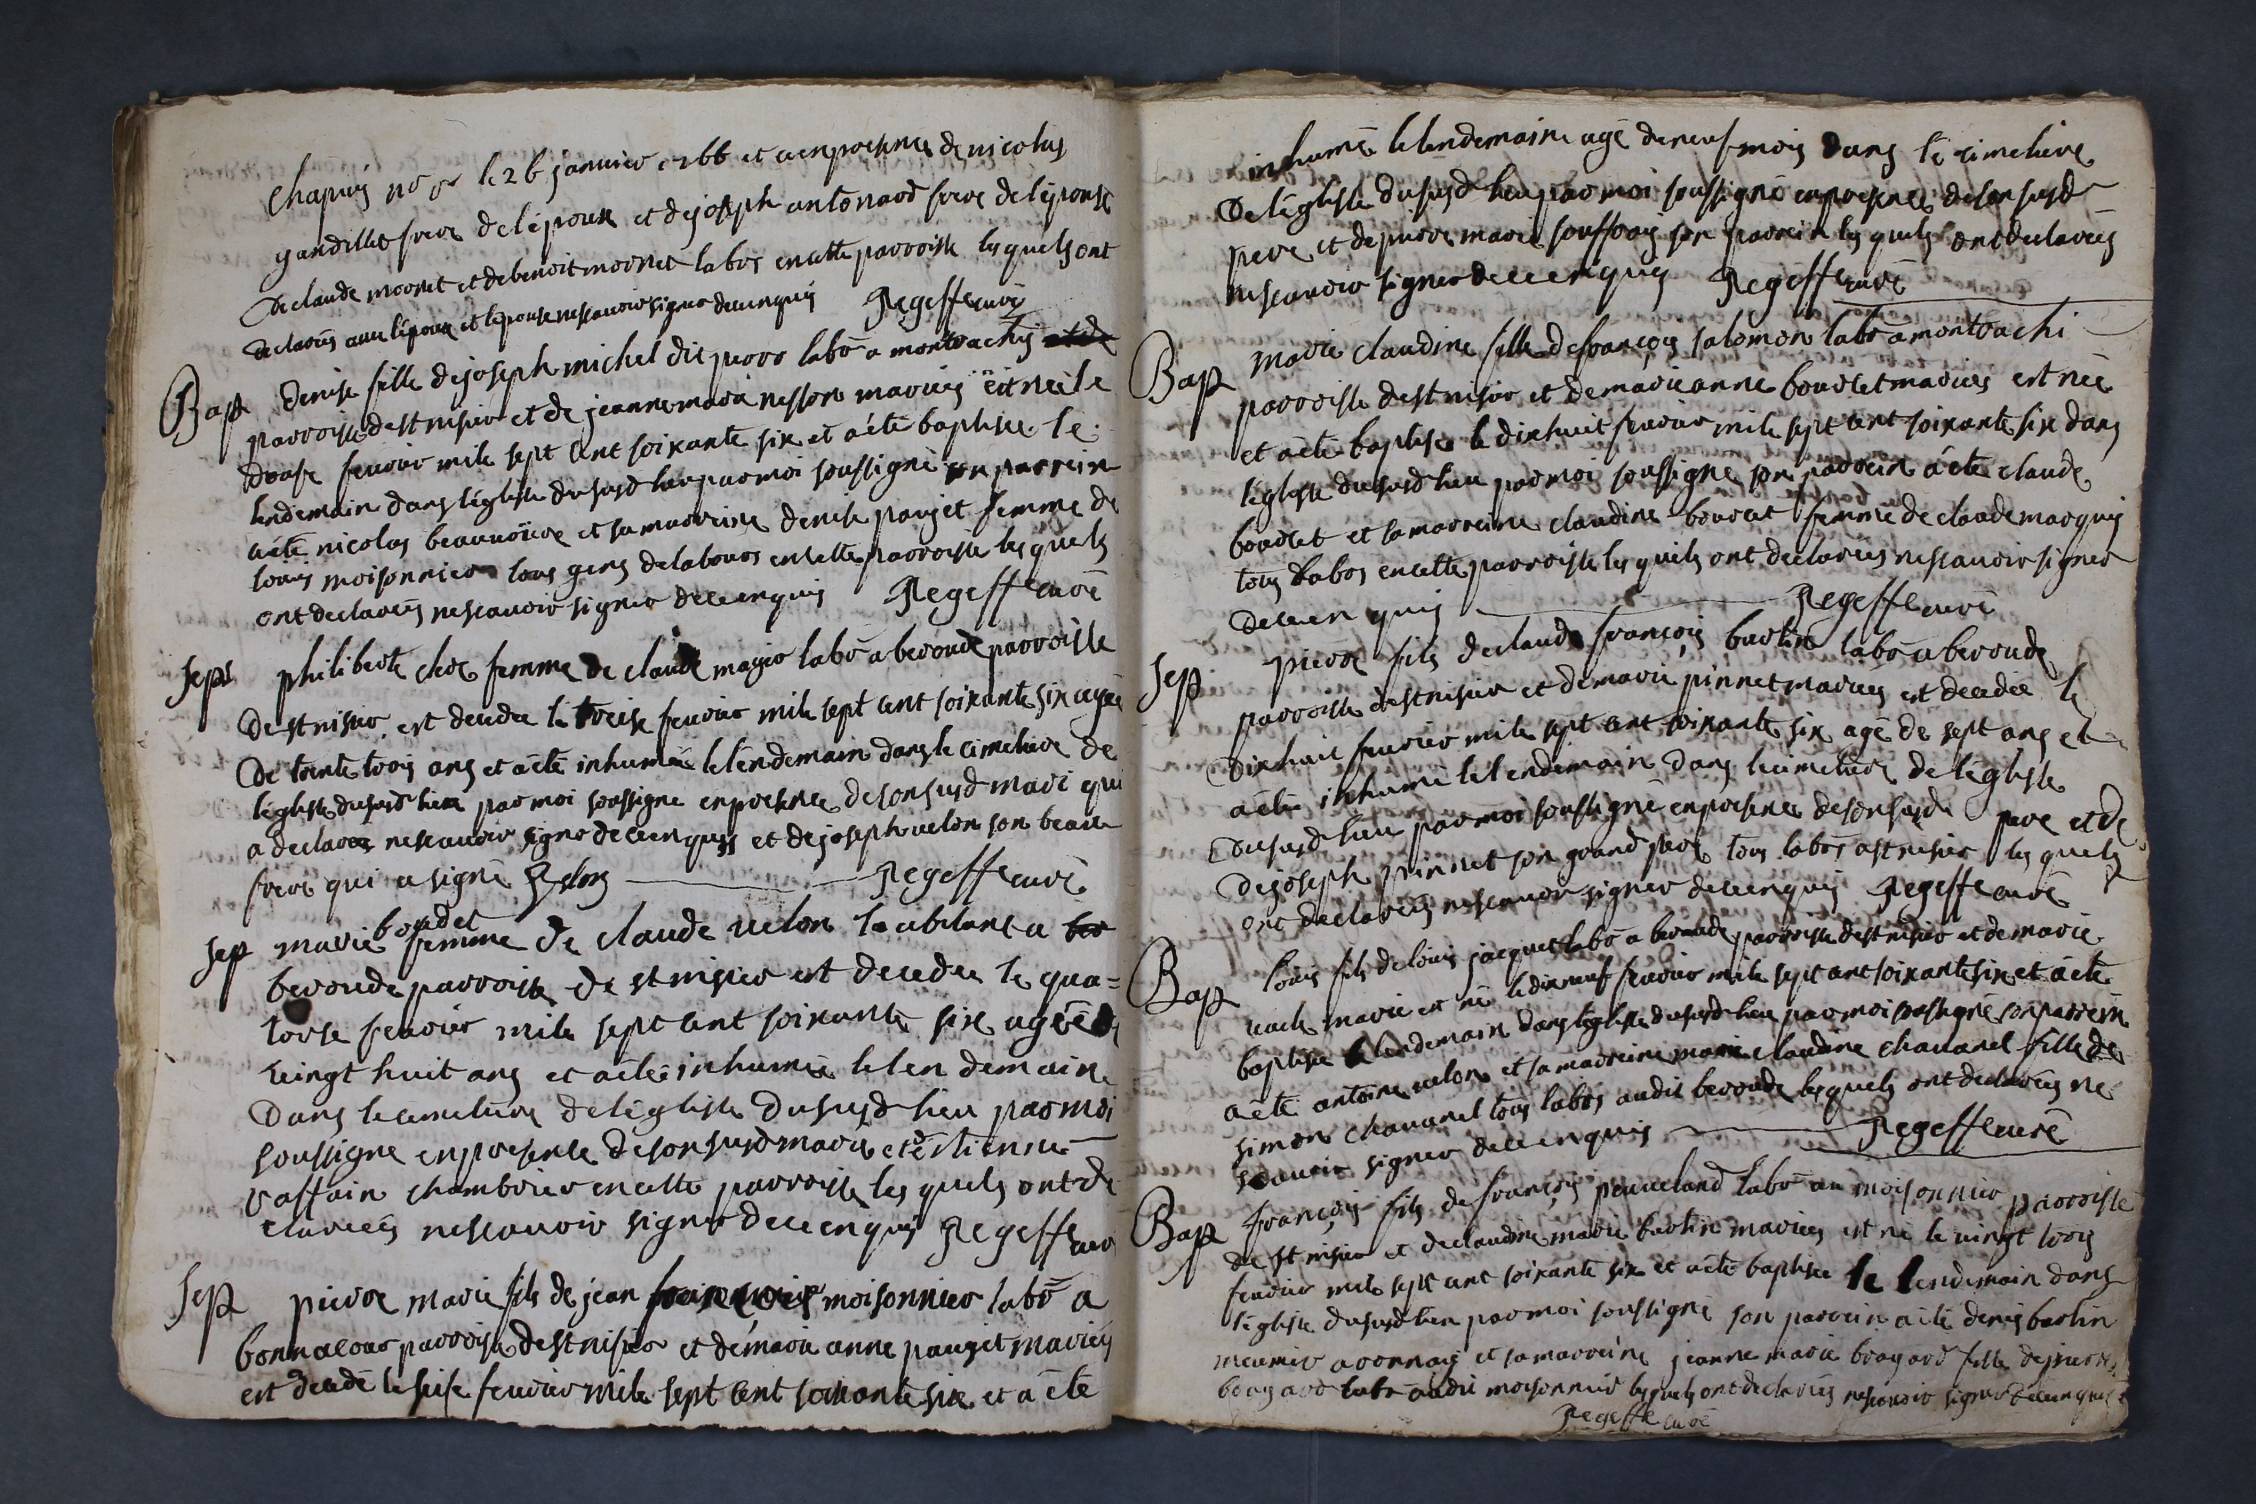 chapuis le 26 janvier 1766 et en presence de nicolas
gandillet frere de lépoux et de joseph antonard frere de lépouse
de claude mornet et de benoit mornet labrs en cette parroisse lesquels ont
declarés avec lépoux et lépouse ne scavoir signer de ce enquis Regeffe curé
Bap denise fille de joseph michel dit perro labr a montrachi
parroisse de st nisier et de jeanne marie nesson mariés est née le
douse fevrier mile sept cent soixante six et a été baptisée le
lendemain dans légliste du susd lieu par moi soussigné son parrein
a été nicolas beauvoire et sa marreine denise pauget femme de
louis moisonnier tous gens de labours en cette parroisse lesquels
ont declarés ne scavoir signer de ce enquis Regeffe curé
Sep philiberte femme de claude magio labr a beronde parroisse
de st nisier est decedée le treise fevrier mile sept cent soixante six agée
de trente trois ans et a été inhumée le lendemain dans le cimetiere de
légliste du susd lieu par moi soussigné en presence de son susd mari qui
a declaré ne scavoir signer de ce enquis et de joseph velon son beau
frere qui a signé Velon Regeffe curé
Sep marie boudet femme de claude velon habitant a
beronde parroisse de st nisier est decedée le qua=
torse fevrier mile sept cent soixante six agée de
vingt huit ans et a été inhumée le lendemain
dans le cimetiere de légliste du susd lieu par moi
soussigné en presence de son susd mari et détienne
vaffain chambrier en cette parroisse lesquels ont de
clarés ne scavoir signer de ce enquis Regeffe curé
Sep pierre marie fils de jean moisonnier labr a
bonnacour parroisse de st nisier et de marie anne pauget mariés
est decedé le seise fevrier mile sept cent soixante six et a été
inhumé le lendemain agé de neuf mois dans le cimetiere
de légliste du susd lieu par moi soussigné en presence de son susd
pere et de pierre marie souffrai son parrein lesquels ont declarés
ne scavoir signer de ce enquis Regeffe curé
Bap marie claudine fille de françois salomon labr a montrachi
parroisse de st nisier et de marie anne bourlet mariés est née
et a été baptisée le dix huit fevrier mile sept cent soixante six dans
légliste du susd lieu par moi soussigné son parrein a été claude
bourlet et sa marreine claudine bourlet femme de claude marquis
tous labrs en cette parroisse lesquels ont declarés ne scavoir signer
de ce enquis Regeffe curé
Sep pierre fils de claude françois burtin labr a beronde
parroisse de st nisier et de marie pinnet mariés est decedée le
dix huit fevrier mile sept cent soixante six agé de sept ans et
a été inhumé le lendemain dans le cimetiere de légliste
du susd lieu par moi soussigné en presence de son susd pere et de
de joseph pinnet son grand pere tous labrs a st nisier lesquels
ont declarés ne scavoir signer de ce enquis Regeffe curé
Bap louis fils de louis jacquet labr a beronde parroisse de st nisier et de marie
mariés est né le dix neuf fevrier mile sept cent soixante six et a été
baptisé le lendemain dans légliste du susd lieu par moi soussigné son parrein
a été antoine velon et sa marreine marie claudine chavanel fille de
simon chavanel tous labrs audit beronde lesquels ont declarés ne
scavoir signer de ce enquis Regeffe curé
Bap françois fils de françois labr au moisonnier parroisse
de st nisier et de claudine marie burtin mariés est né le vingt trois
fevrier mile sept cent soixante six et a été baptisée le lendemain dans
légliste du susd lieu par moi soussigné son parrein a été denis burtin
meunier a ronnay et sa marreine jeanne marie brayard fille de pierre
brayard labr audit moisonnier lesquels ont declarés ne scavoir signer de ce enquis
Regeffe curé